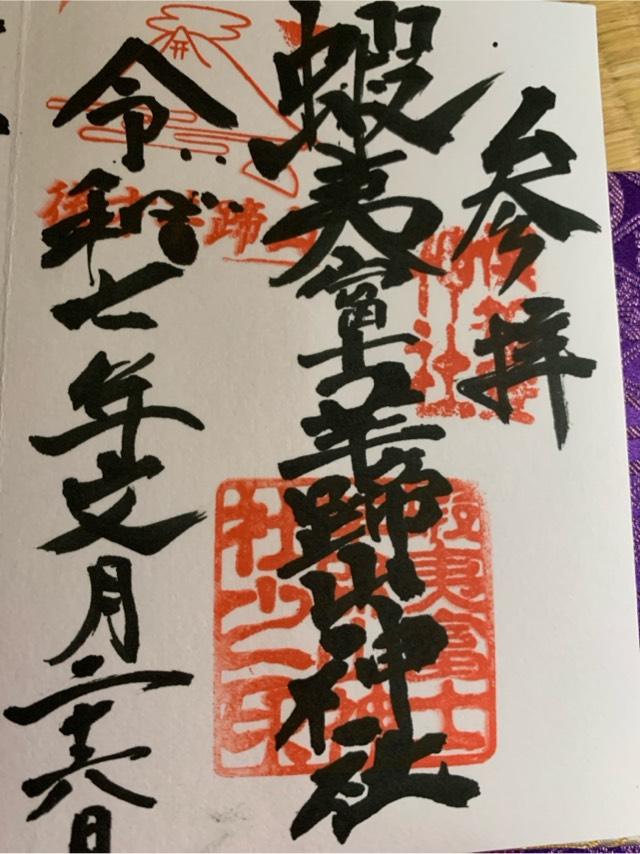 参拝
蝦夷富士羊蹄山神社
令和七年文月二十六日
蝦夷富士